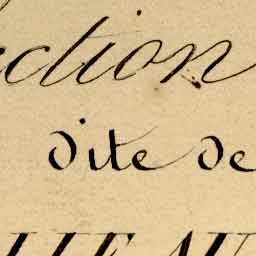 ction
dite de